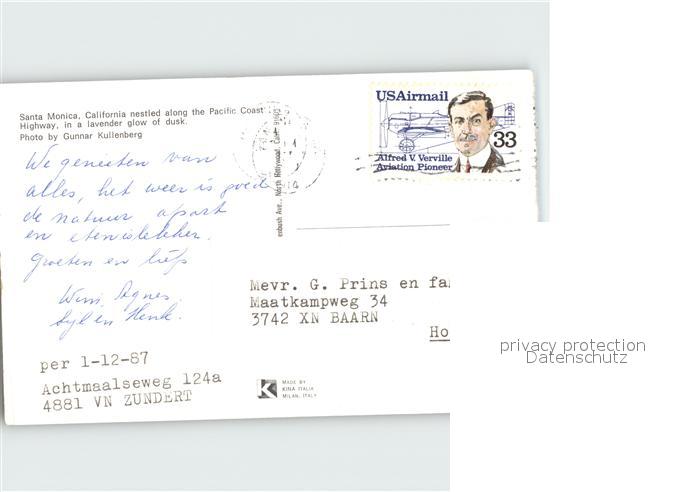 Santa Monica, California nestled along the Pacific Coast
Highway, in a lavender glow of dusk.
Photo by Gunnar Kullenberg
We genieten van
alles, het weer is goed
de natuur apart
en eten is lekker.
groeten en liefs
Wim, Agnes,
Sijl en Henk.
per 1-12-87
Achtmaalseweg 124a
4881 VN ZUNDERT
enbush Ave., North Hollywood, Calif. 91605
USAirmail
33
Alfred V. Verville
Aviation Pioneer
Mevr. G. Prins en fa
Maatkampweg 34
3742 XN BAARN
Ho
K
MADE BY
KINA ITALIA
MILAN, ITALY
privacy protection
Datenschutz